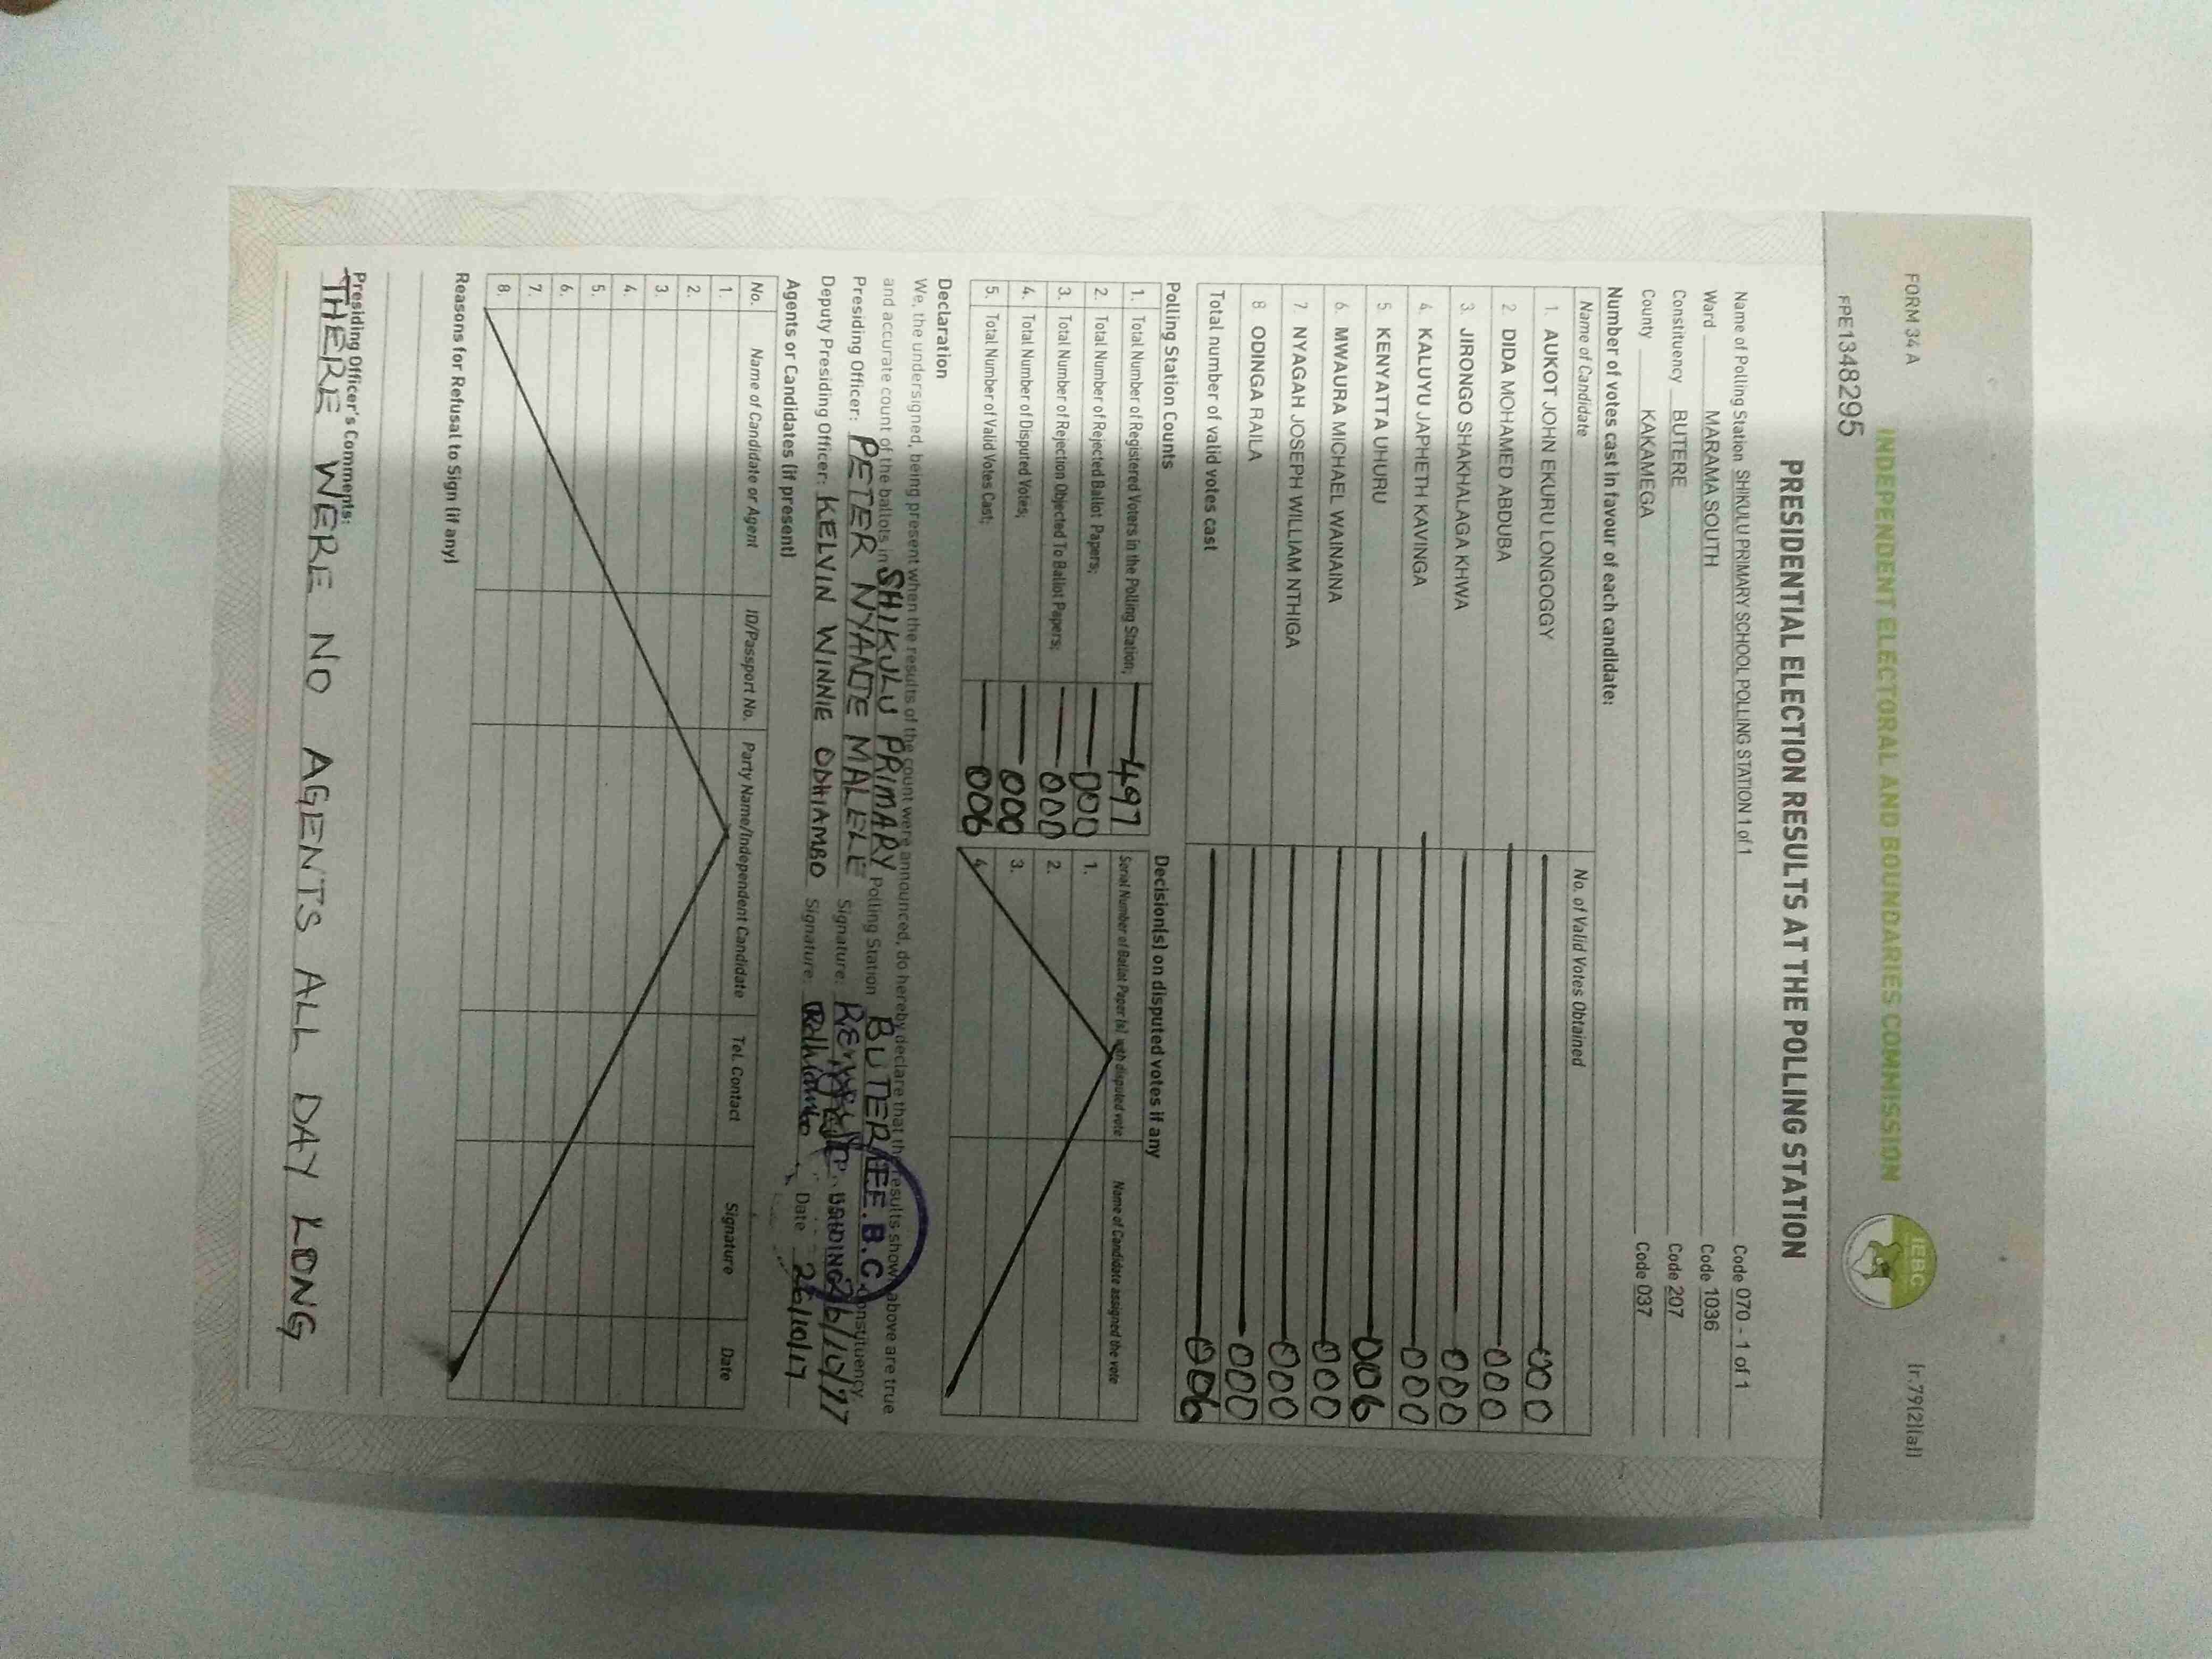 FORM 34 A
(r.79(2)(a))
INDEPENDENT ELECTORAL AND BOUNDARIES COMMISSION
IEBC
FPE1348295
PRESIDENTIAL ELECTION RESULTS AT THE POLLING STATION
Name of Polling Station SHIKULU PRIMARY SCHOOL POLLING STATION 1 of 1 Code 070 - 1 of 1
Ward MARAMA SOUTH Code 1036
Constituency BUTERE Code 207
County KAKAMEGA Code 037
Number of votes cast in favour of each candidate:
Name of Candidate No. of Valid Votes Obtained
1. AUKOT JOHN EKURU LONGOGGY 000
2 DIDA MOHAMED ABDUBA 000
3. JIRONGO SHAKHALAGA KHWA 000
4. KALUYU JAPHETH KAVINGA 000
5 KENYATTA UHURU 006
6. MWAURA MICHAEL WAINAINA 000
7 NYAGAH JOSEPH WILLIAM NTHIGA 000
8 ODINGA RAILA 000
Total number of valid votes cast 006
Polling Station Counts
1. Total Number of Registered Voters in the Polling Station; 497
2. Total Number of Rejected Ballot Papers; 000
3. Total Number of Rejection Objected To Ballot Papers; 000
4. Total Number of Disputed Votes; 000
5. Total Number of Valid Votes Cast; 006
Decision(s) on disputed votes if any
Serial Number of Ballot Paper (s) with disputed vote Name of Candidate assigned the vote
1.
2.
3.
4.
Declaration
We, the undersigned, being present when the results of the count were announced, do hereby declare that the results shown above are true
and accurate count of the ballots in SHIKULU PRIMARY Polling Station BUTERE Constituency.
Presiding Officer: PETER NYANJE MALELE Signature: 26/10/17
Deputy Presiding Officer: KELVIN WINNIE ODHIAMBO Signature: Date 26/10/17
Agents or Candidates (if present)
No. Name of Candidate or Agent ID/Passport No. Party Name/Independent Candidate Tel. Contact Signature Date
1.
2.
3.
4.
5.
6.
7.
8.
Reasons for Refusal to Sign (if any)
Presiding Officer's Comments:
THERE WERE NO AGENTS ALL DAY LONG